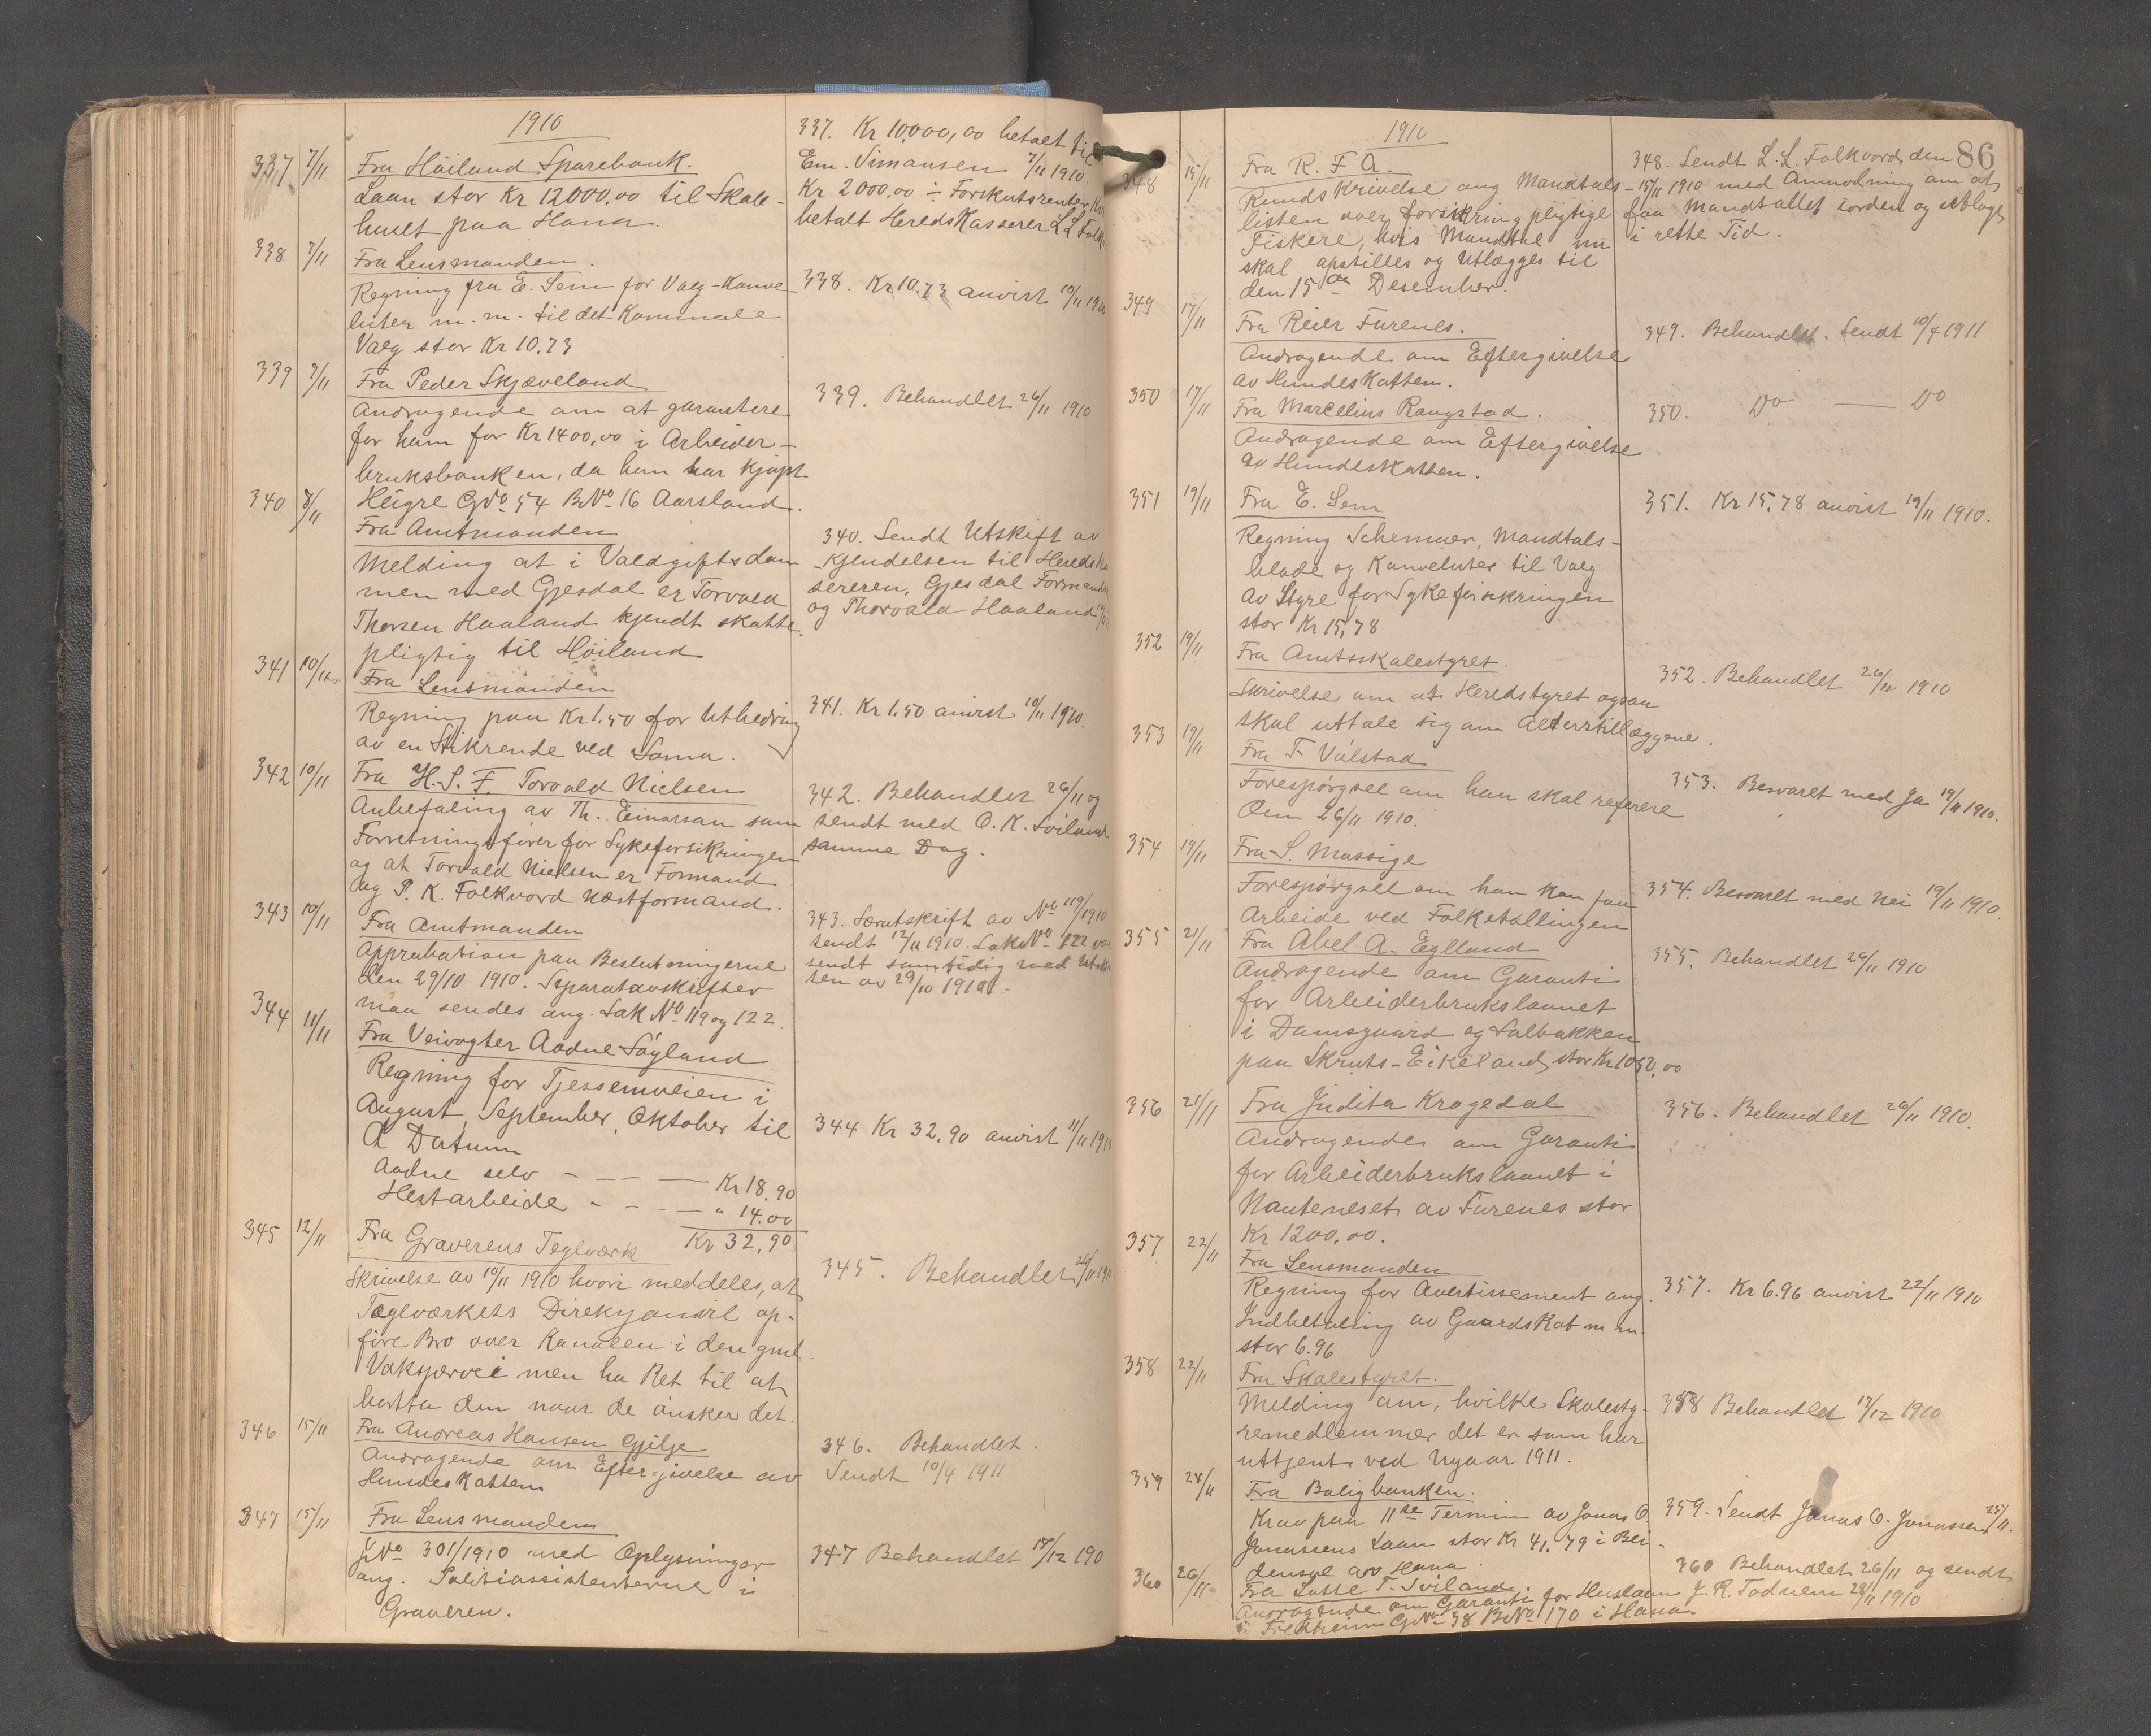 1910
337 7/11 Fra Höiland Sparebank.
Laan stor Kr 12000.00 til Skole-
huset paa Hana.
337. Kr 10000,00 betalt til
Em. Simonsen 7/11 1910.
Kr 2000.00 ÷ Forskutsrenter
betalt Heredskasserer L L Folk
338 7/11 Fra Lensmanden.
Regning fra E. Sem for Valg-Konvo-
luter m. m. til det Kommunale
Valg stor Kr 10.73
338. Kr 10.73 anvist 10/11 1910
339 7/11 Fra Peder Skjæveland
Andragende om at garantere
for ham for Kr 1400,00 i Arbeider-
bruksbanken, da han har kjøpt
Heigre GNo 54 BNo 16 Aarsland.
339. Behandlet 26/11 1910
340 8/11 Fra Amtmanden
Melding at i Voldgiftsdom
men med Gjesdal er Torvald
Thorsen Haaland kjendt skatte-
pligtig til Höiland
340. Sendt Utskift av
Kjendelsen til Hereds
sereren, Gjesdal Formand
og Thorvald Haaland
341 10/11 Fra Lensmanden
Regning paa Kr 1.50 for Utbedring
av en Stikrende ved Soma.
341. Kr 1.50 anvist 10/11 1910.
342 10/11 Fra H. S. F. Torvald Nielsen
Anbefaling av Th. Einarsen som
Forretningsfører for Sykeforsikringen
og at Torvald Nielsen er Formand
og P. K. Folkvord Næstformand.
342. Behandlet 26/11 og
sendt med O. K. Sviland
samme Dag.
343 10/11 Fra Amtmanden
Approbation paa Beslutningerne
den 29/10 1910. Separatavskrifter
maa sendes ang. Sak No 119 og 122.
343. Særutskrift av No 119/1910
sendt 12/11 1910. Sak No 122 var
sendt samtidig med Utskrif
ten av 29/10 1910.
344 11/11 Fra Veivogter Aadne Söyland
Regning for Tjessemveien i
August, September, Oktober til
d Datum
Aadne selv - - - Kr 18.90
Hestarbeide - - - " 14.00
Kr 32,90
344 Kr 32.90 anvist 11/11 1910
345 12/11 Fra Graverens Teglværk
Skrivelse av 10/11 1910 hvori meddeles, at
Teglværkets Direksjon vil op-
före Bro over Kanalen i den gml.
Vaksjervei men ha Ret til at
bortta den naar de önsker det.
345. Behandlet 26/11 1910
346 15/11 Fra Andreas Hansen Gjilje
Andragende om Eftergivelse av
Hundeskatten
346. Behandlet.
Sendt 10/4 1911
347 15/11 Fra Lensmanden
JNo 301/1910 med Oplysninger
ang. Politiassistenterne i
Graveren.
347 Behandlet 17/12 190
1910
86
348 15/11 Fra R. F A.
Rundskrivelse ang Mandtals-
listen over forsikringspligtige
Fiskere, hvis Mandtal nu
skal opstilles og Utlægges til
den 15de Desember.
348. Sendt L. L. Folkvord, den
15/11 1910 med Anmodning om at
faa Mandtallet iorden og utlagt
i rette Tid.
349 17/11 Fra Reier Furenes.
Andragende om Eftergivelse
av Hundeskatten.
349. Behandlet. Sendt 10/4 1911
350 17/11 Fra Marcelius Raugstad.
Andragende om Eftergivelse
av Hundeskatten.
350. Do — Do
351 19/11 Fra E. Sem
Regning Schemaer, Mandtals-
blade og Konvoluter til Valg
av Styre for Sykeforsikringen
stor Kr 15,78
351. Kr 15,78 anvist 19/11 1910.
352 19/11 Fra Amtsskolestyret.
Skrivelse om at Heredstyret ogsaa
skal uttale sig om Alderstillæggene.
352. Behandlet 26/11 1910
353 19/11 Fra T. Válstad
Forespörgsel om han skal referere
Den 26/11 1910.
353. Besvaret med Ja 19/11 1910.
354 19/11 Fra S. Massige
Forespörgsel om han kan faa
Arbeide ved Folketællingen
354. Besvaret med Nei 19/11 1910.
355 21/11 Fra Abel A. Eglland
Andragende om Garanti
for Arbeiderbrukslaanet
i Damsgaard og Solbakken
paa Skruts-Eikeland, stor Kr 1050.00
355. Behandlet 26/11 1910
356 21/11 Fra Judita Krogedal
Andragende om Garanti
for Arbeiderbrukslaanet i
Nauteneset av Furenes stor
Kr 1200.00.
356. Behandlet 26/11 1910.
357 22/11 Fra Lensmanden
Regning for Avertissement ang.
Indbetaling av Gaardskat m m.
stor 6.96
357. Kr 6.96 anvist 22/11 1910
358 22/11 Fra Skolestyret.
Melding om, hvilke Skolesty-
remedlemmer det er som har
uttjent ved Nyaar 1911.
358 Behandlet 17/12 1910
359 24/11 Fra Boligbanken.
Krav paa 11te Termin av Jonas O.
Jonassens Laan stor Kr 41.79 i
av Hana.
359. Sendt Jonas O. Jonassen 25/11.
360 26/11 Fra T. Sviland.
Andragende om Garanti for Huslaan
GNo 38 BNo 170 i Hana
360 Behandlet 26/11 og sendt
J. R. Todnem 28/11 1910